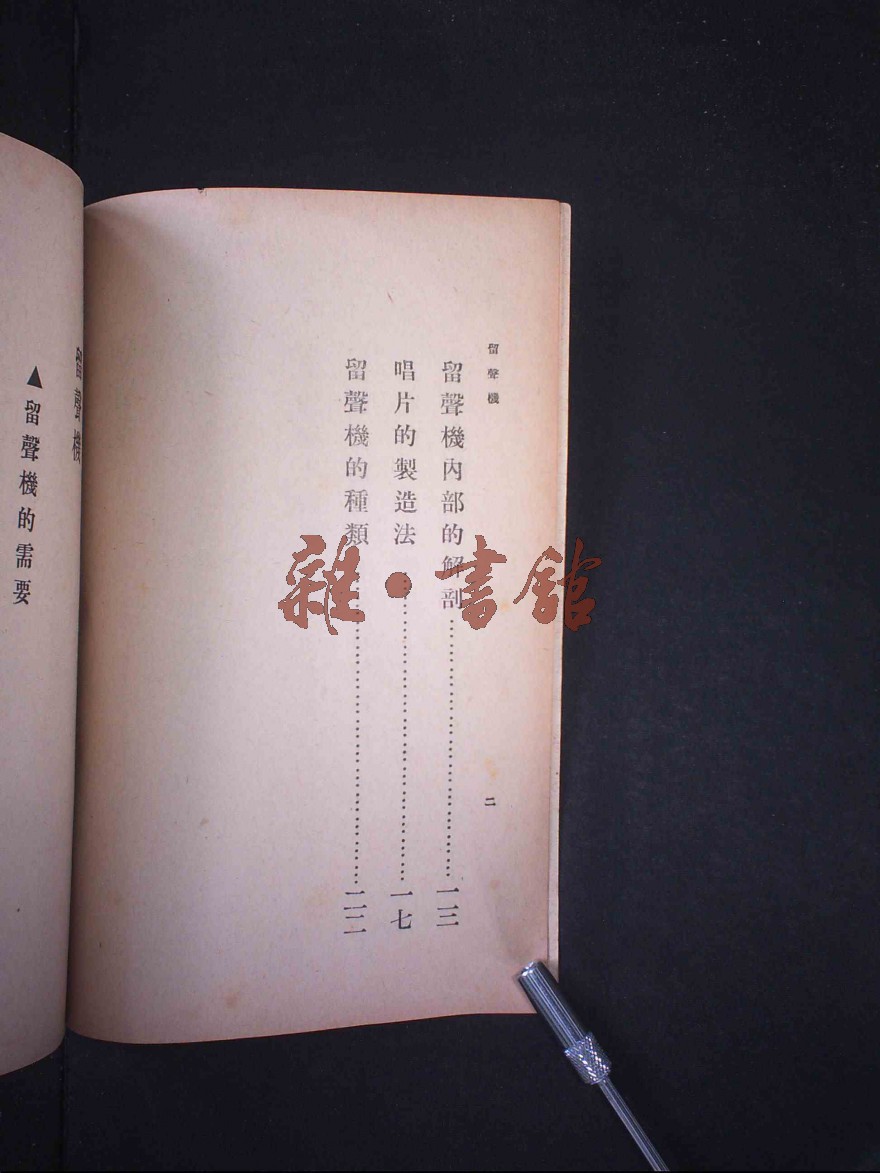 留聲機
二
留聲機內部的解剖……………………一三
唱片的製造法……………………一七
留聲機的種類……………………二二
留聲機
▲留聲機的需要
雜·書館